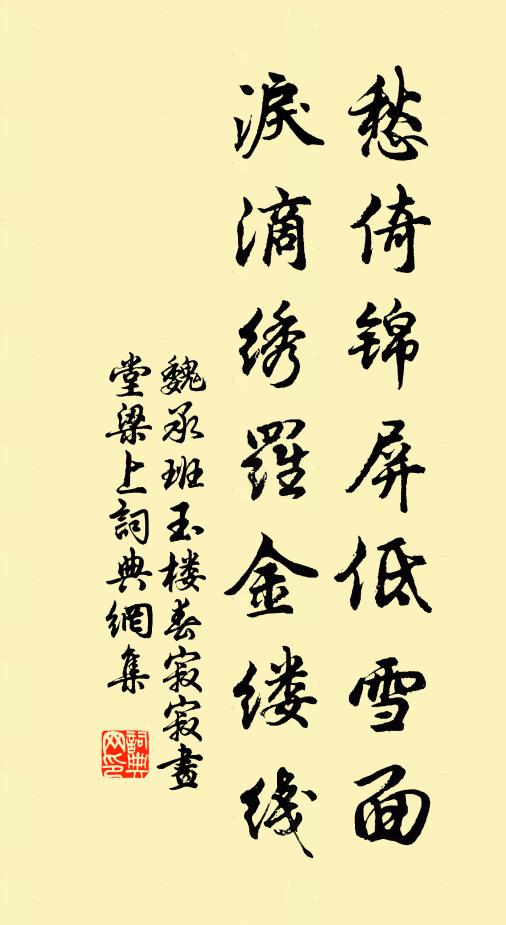 愁倚锦屏低雪面
淚滴绣羅金缕线
魏承班玉楼春寂寂畫
堂梁上詞典網集
詞典网印